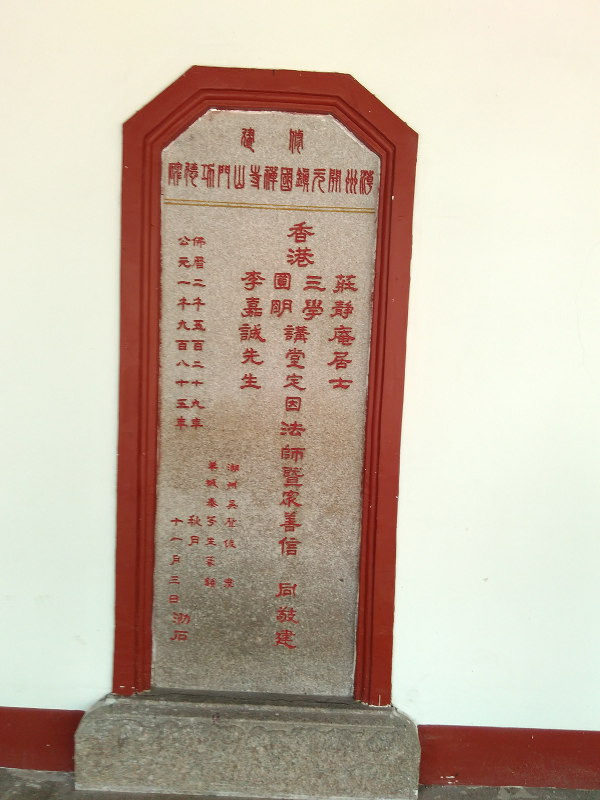 修建
潮州開元鎮國禪寺山門功德碑
莊靜庵居士
香港
三學
圓明
講堂定因法師暨眾善信 同敬建
李嘉誠先生
潮州吳 書
羊城秦咢生篆額
佛曆二千五百二十九年 秋月
公元一千九百八十五年 十一月三日 勒石